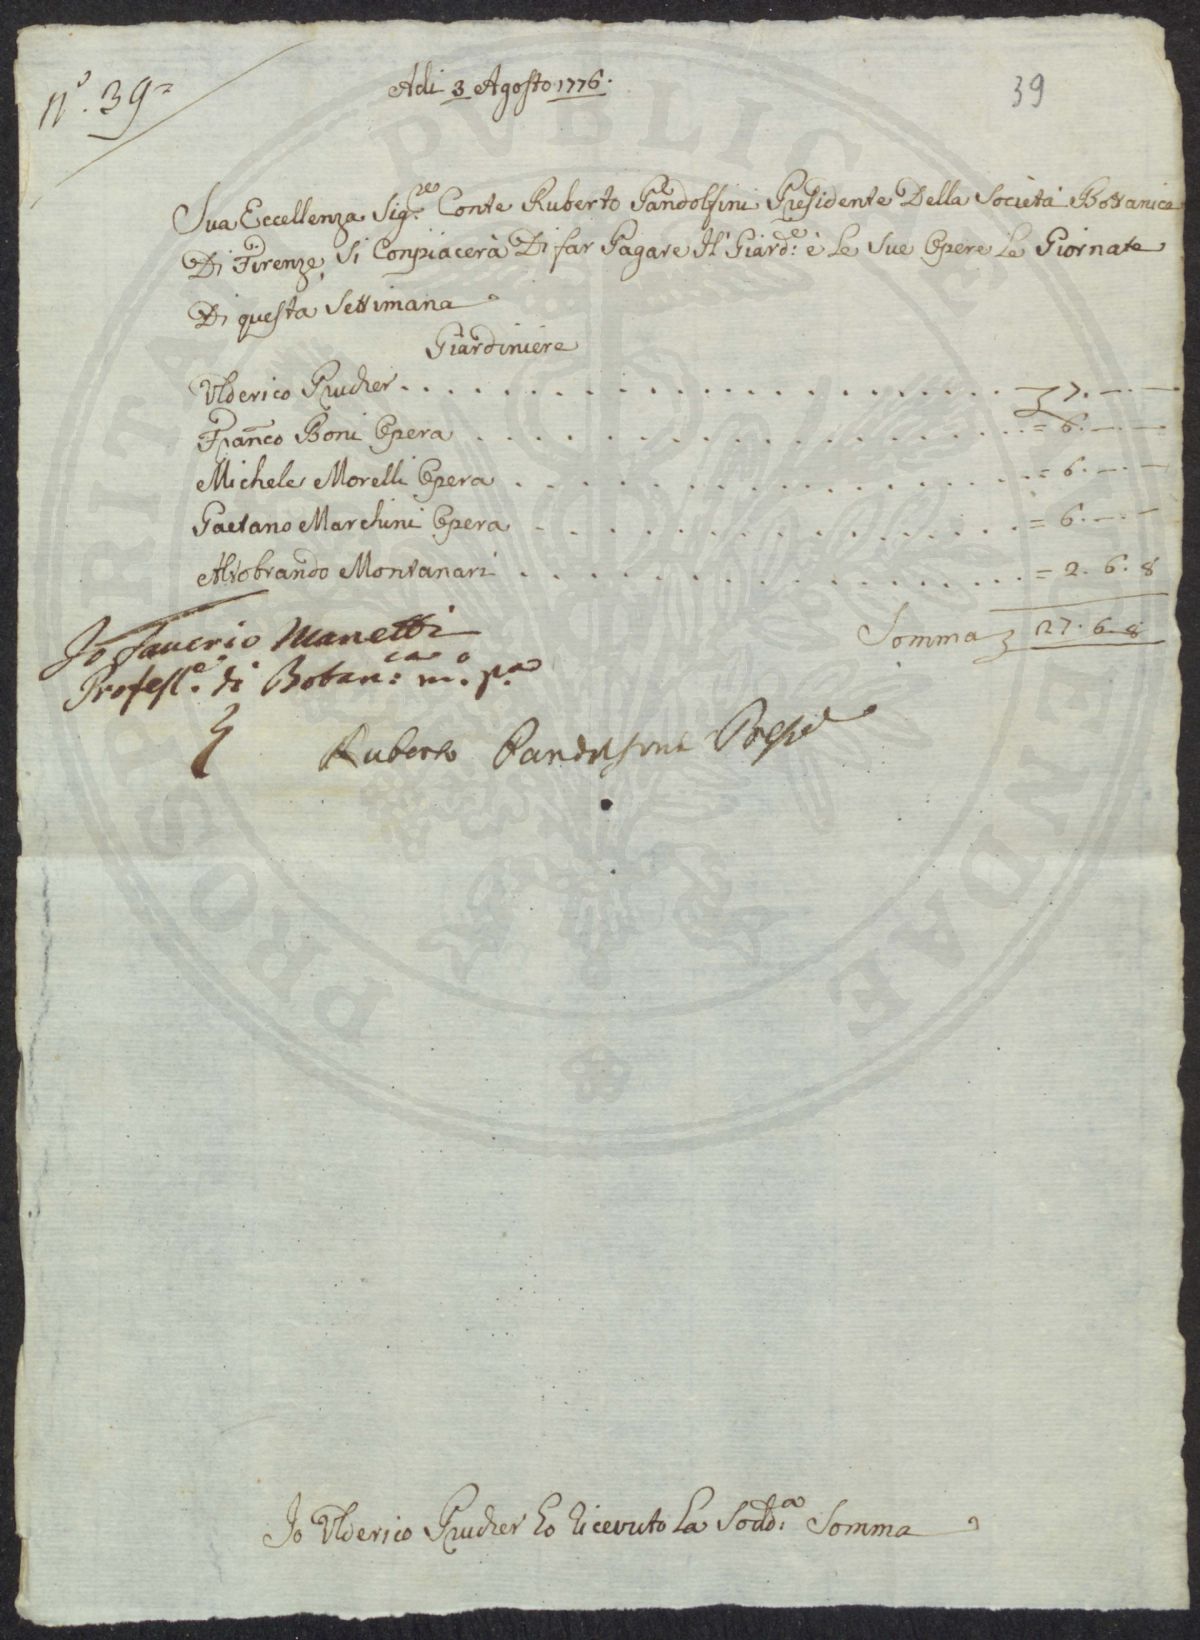 n.º 39
Adi 3 Agosto 1776.
39
Sua Eccellenza Sig.re Conte Ruberto Pandolfini Presidente Della Società Bottanica
Di Firenze, Si Conpiacerà Di far Pagare Il Giard.e è Le Sue Opere Le Giornate
Di questa Settimana
Giardiniere
Ulderico Prucher . . . . . . . . . . . . . . . . . . . . . 7. — . —
Franco Boni Opera . . . . . . . . . . . . . . . . . . = 6. — . —
Michele Morelli Opera . . . . . . . . . . . . . . . . . = 6. — . —
Gaetano Marchini Opera . . . . . . . . . . . . . . . . = 6. — . —
Aldobrando Montanari . . . . . . . . . . . . . . . . . = 2. 6. 8
Somma 27. 6. 8
Io Saverio Manetti
Profess.e di Botan.ca m.o p.a
Ruberto Pandolfini Presid
Io Ulderico Prucher ho ricevuto La Sodd.a Somma
PROSPERITATI PVBLICAE AVGENDAE